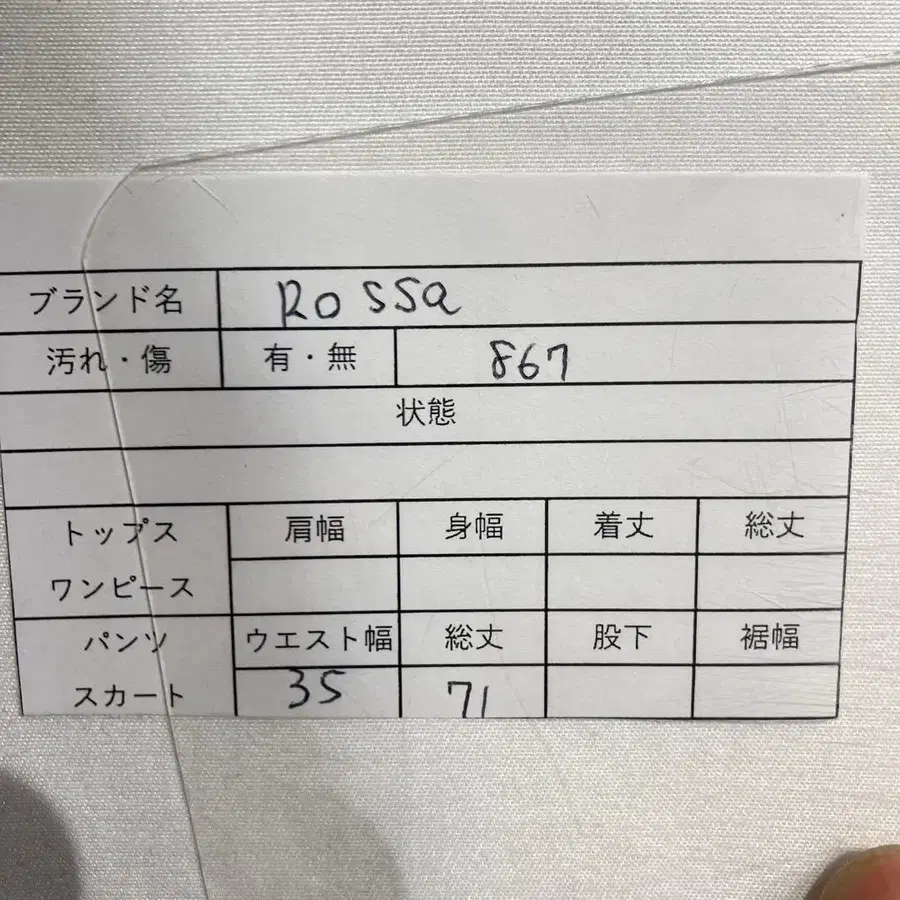 ブランド名 Rossa
汚れ・傷 有・無 867
状態
トップス 肩幅 身幅 着丈 総丈
ワンピース
パンツ ウエスト幅 総丈 股下 裾幅
スカート 35 71